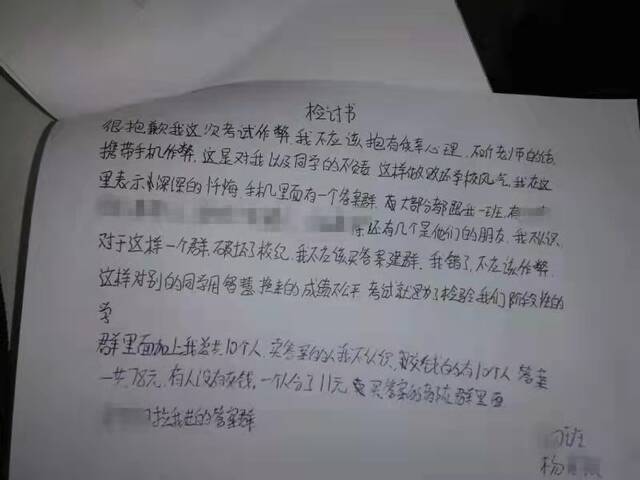 检讨书
很抱歉我这次考试作弊,我不应该抱有侥幸心理,不听老师的话
携带手机作弊,这是对我以及同学的不负责 这样做败坏学校风气,我在这
里表示深深的忏悔,手机里面有一个答案群 有大部分都跟我一班,有
还有几个是他们的朋友,我不认识,
对于这样一个群,破坏了校纪,我不应该买答案建群,我错了,不应该作弊,
这样对别的同学用智慧换来的成绩不公平 考试就是为了检验我们阶段性的
学
群里面加上我总共10个人,卖答案的人我不认识,没交钱的有10个人 答案
一共78元,有人没有交钱,一个人分了11元 买答案的都在群里面
拉我进的答案群
班
杨